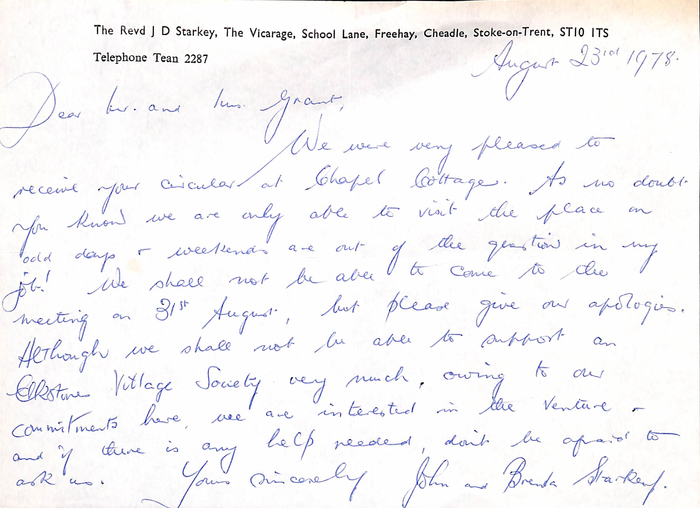 The Revd J D Starkey, The Vicarage, School Lane, Freehay, Cheadle, Stoke-on-Trent, ST10 1TS
Telephone Tean 2287
August 23rd 1978.
Dear Mr. and Mrs. Grant,
We were very pleased to
receive your circular at Chapel Cottage. As no doubt
you know we are only able to visit the place on
odd days & weekends are out of the question in my
job! We shall not be able to come to the
meeting on 31st August, but please give our apologies.
Although we shall not be able to support an
Elkstone Village Society very much, owing to our
commitments here, we are interested in the venture &
and if there is any help needed, don't be afraid to
ask us. Yours sincerely John and Brenda Starkey.